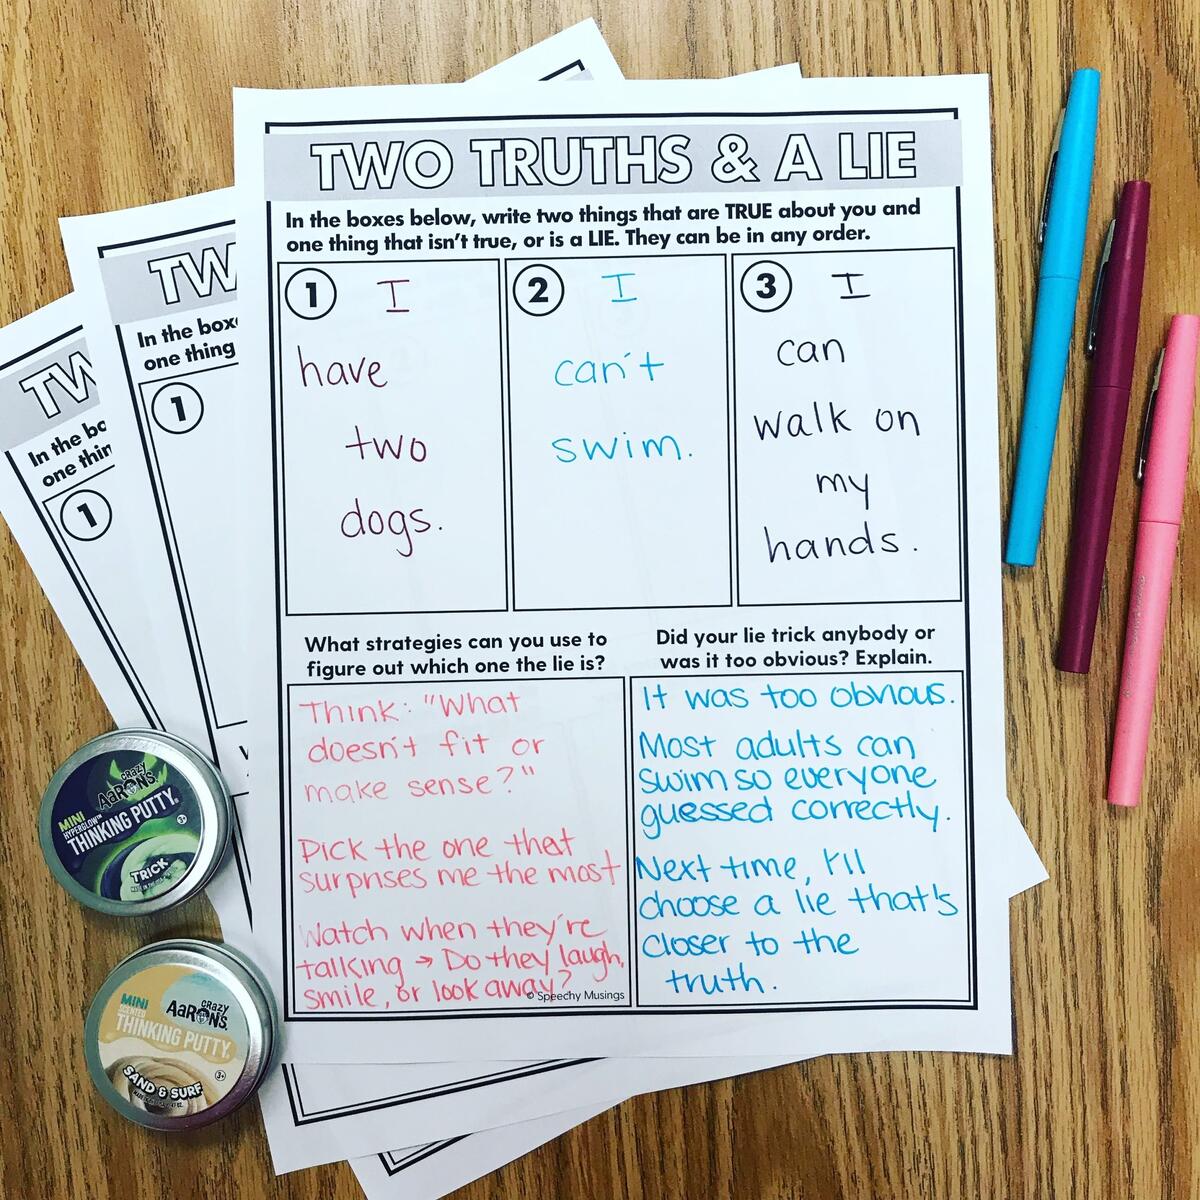 TWO TRUTHS & A LIE
In the boxes below, write two things that are TRUE about you and
one thing that isn't true, or is a LIE. They can be in any order.
1 I
have
two
dogs.
2 I
can't
swim.
3 I
can
walk on
my
hands.
What strategies can you use to
figure out which one the lie is?
Think: "What
doesn't fit or
make sense?"
Pick the one that
surprises me the most
Watch when they're
talking → Do they laugh,
smile, or look away?
© Speechy Musings
Did your lie trick anybody or
was it too obvious? Explain.
It was too obvious.
Most adults can
swim so everyone
guessed correctly.
Next time, I'll
choose a lie that's
closer to the
truth.
TW
In the box
one thing
1
TW
In the bo
one thin
1
CRAZY
AARON'S
MINI
HYPERGLOW™
THINKING PUTTY®
3+
TRICK
CRAZY
AARON'S
MINI
SCENTED
THINKING PUTTY®
3+
SAND & SURF